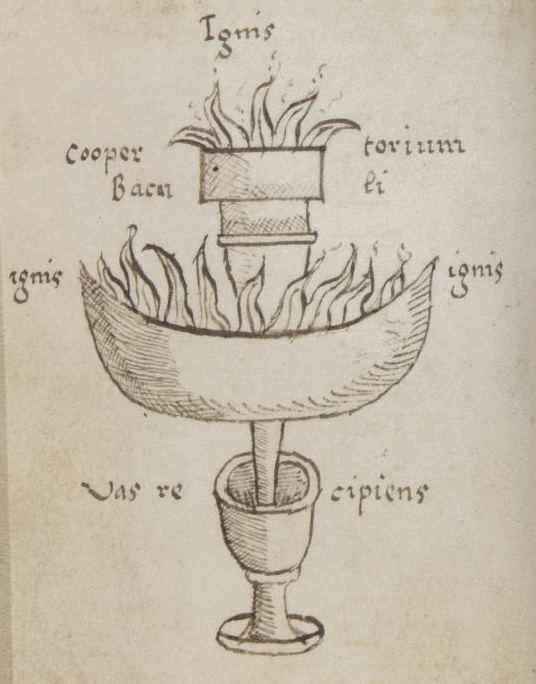 Ignis
Cooper torium
Bacu li
ignis ignis
Vas re cipiens